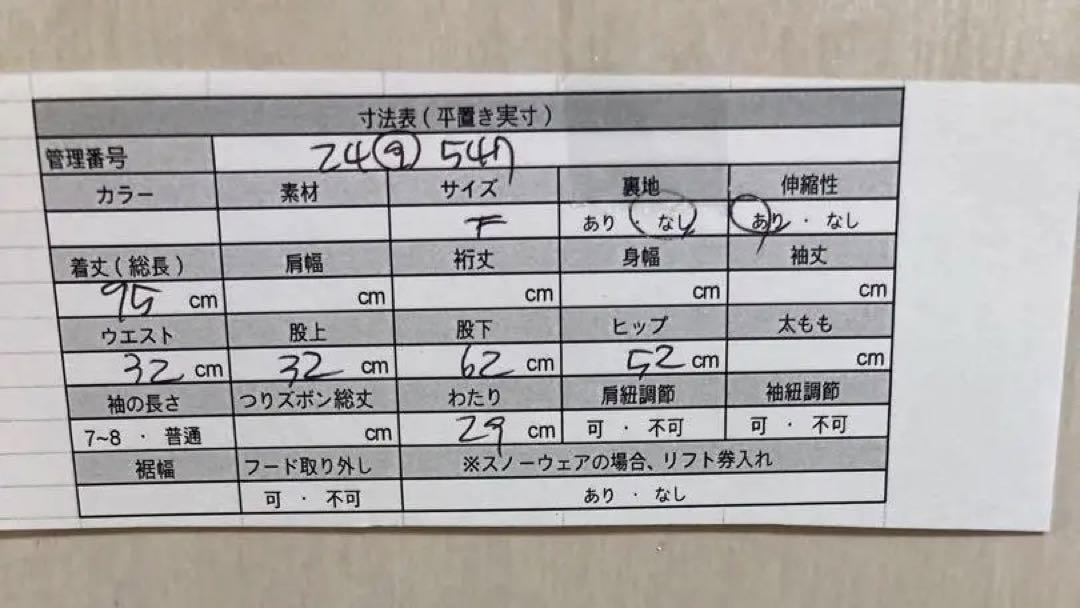 寸法表(平置き実寸)
管理番号 24
カラー 素材 サイズ 裏地 伸縮性
F あり ・ なし あり ・ なし
着丈(総長) 肩幅 裄丈 身幅 袖丈
95 cm cm cm cm cm
ウエスト 股上 股下 ヒップ 太もも
32 cm 32 cm 62 cm 52 cm cm
袖の長さ つりズボン総丈 わたり 肩紐調節 袖紐調節
7~8 ・ 普通 cm 29 cm 可 ・ 不可 可 ・ 不可
裾幅 フード取り外し ※スノーウェアの場合、リフト券入れ
可 ・ 不可 あり ・ なし